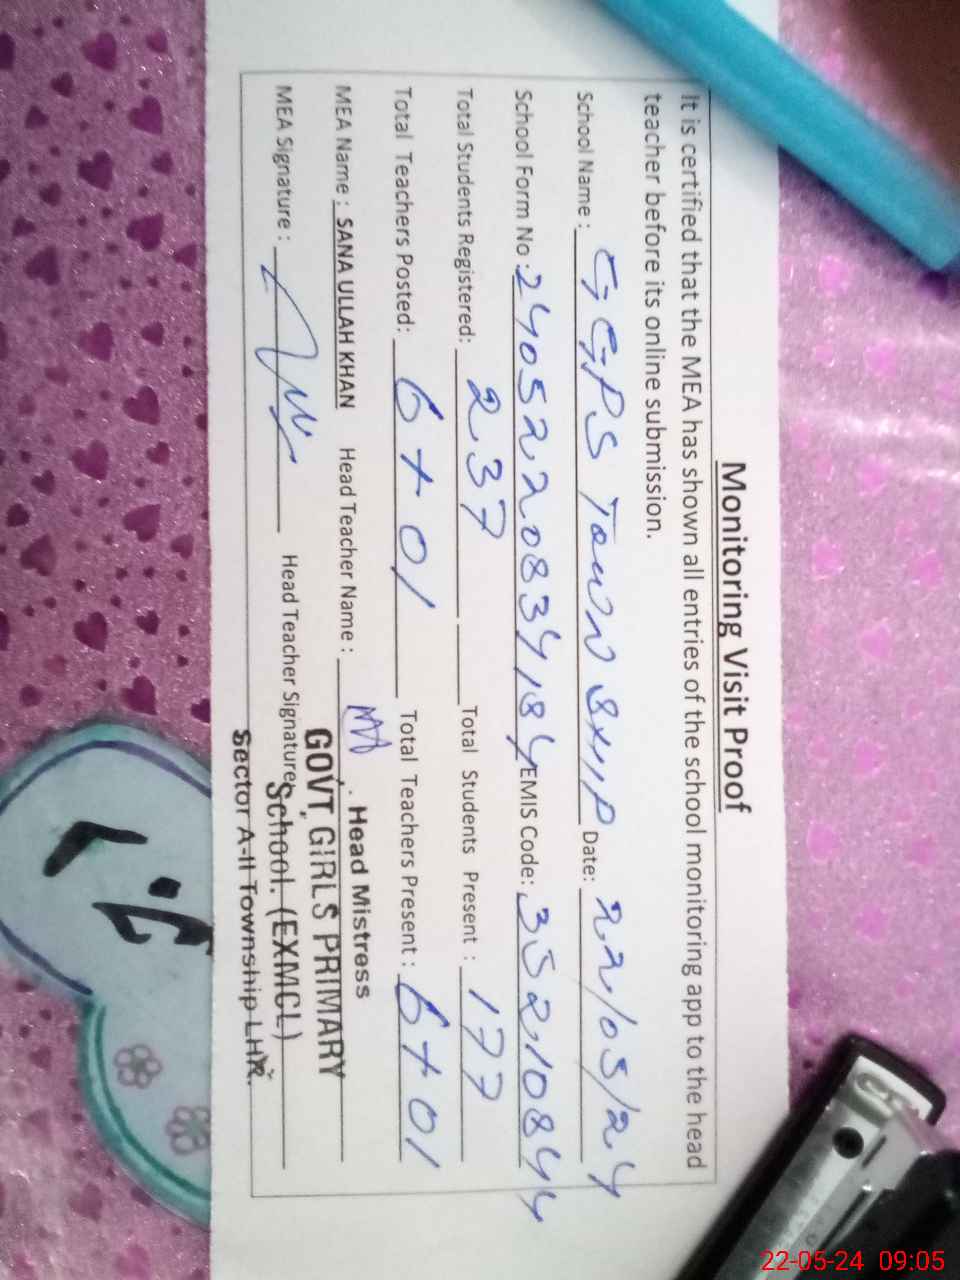 Monitoring Visit Proof
It is certified that the MEA has shown all entries of the school monitoring app to the head
teacher before its online submission.
School Name : GGPS TOWN SHIP Date: 22/05/24
School Form No : 2405220834184 EMIS Code: 35210844
Total Students Registered: 237 Total Students Present : 177
Total Teachers Posted: 6+01 Total Teachers Present : 6+01
MEA Name : SANA ULLAH KHAN Head Teacher Name :
MEA Signature : Head Teacher Signature
Head Mistress
GOVT, GIRLS PRIMARY
School. (EXMCL)
Sector A-II Township LHR.
22-05-24 09:05